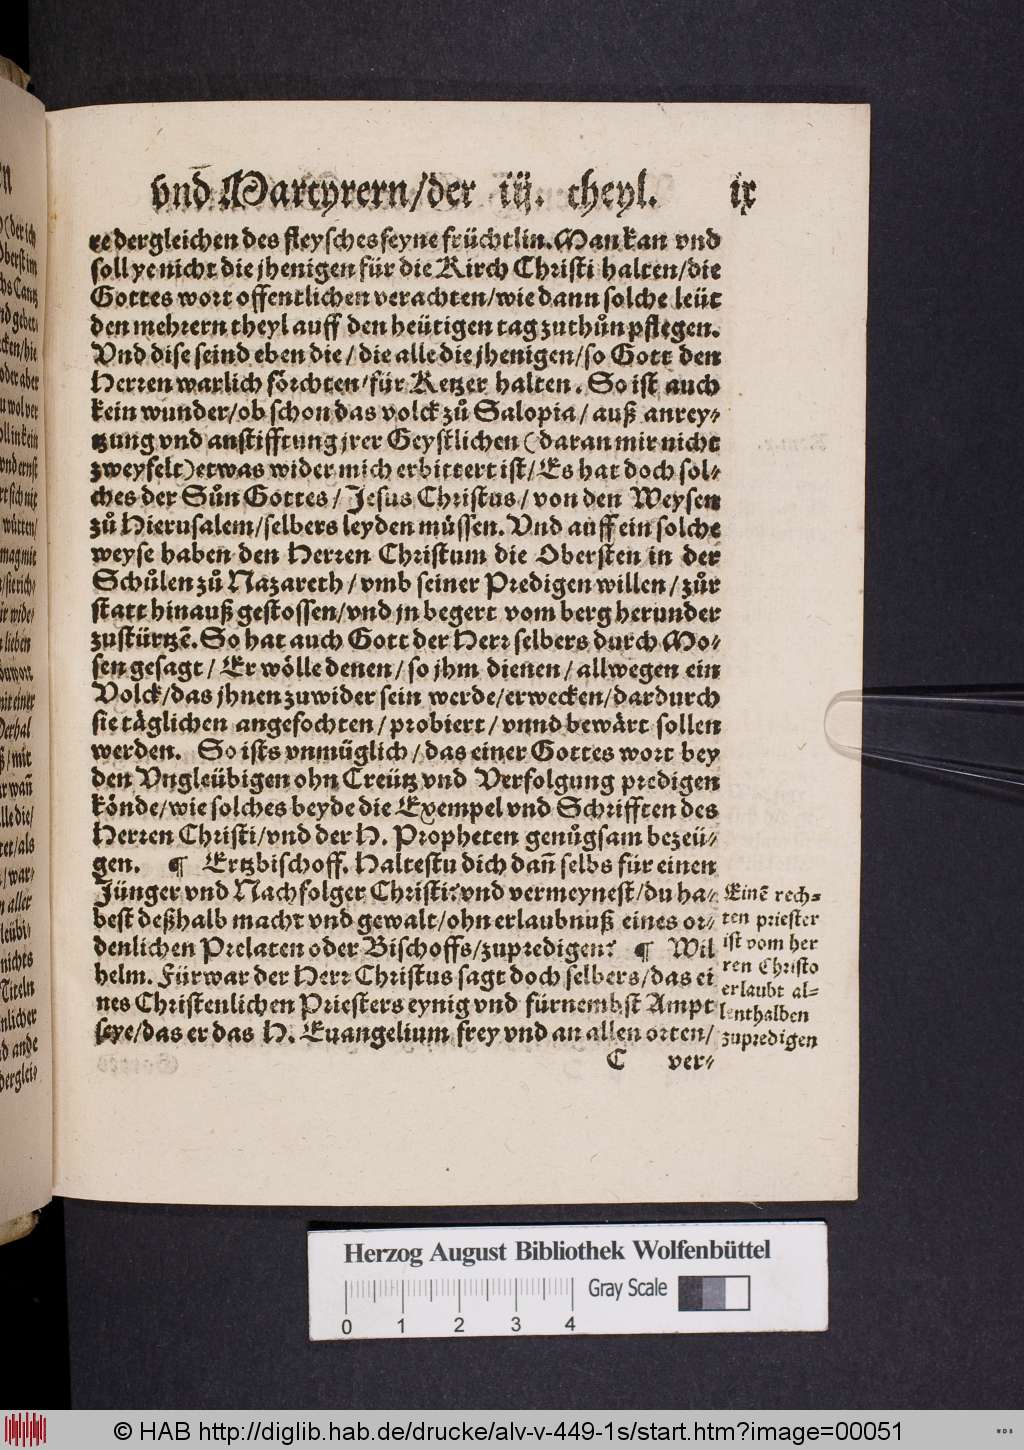 vnd Martyrern/der iij. theyl. ix
re dergleichen des fleysches seyne früchtlin. Man kan vnd
soll ye nicht die jhenigen für die Kirch Christi halten/die
Gottes wort offentlichen verachten/wie dann solche leüt
den mehrern theyl auff den heütigen tag zuthůn pflegen.
Vnd dise seind eben die/die alle die jhenigen/so Gott den
Herren warlich förchten/für Ketzer halten. So ist auch
kein wunder/ob schon das volck zů Salopia/auß anrey-
tzung vnd anstifftung jrer Geystlichen (daran mir nicht
zweyfelt) etwas wider mich erbittert ist/Es hat doch sol-
ches der Sůn Gottes/Jesus Christus/von den Weysen
zů Hierusalem/selbers leyden müssen. Vnd auff ein solche
weyse haben den Herren Christum die Obersten in der
Schůlen zů Nazareth/vmb seiner Predigen willen/zůr
statt hinauß gestossen/vnd jn begert vom berg herunder
zustürtzē. So hat auch Gott der Herr selbers durch Mo-
sen gesagt/Er wölle denen/so jhm dienen/allwegen ein
Volck/das jhnen zuwider sein werde/erwecken/dardurch
sie täglichen angefochten/probiert/vnnd bewärt sollen
werden. So ists vnmüglich/das einer Gottes wort bey
den Vngleübigen ohn Creütz vnd Verfolgung predigen
könde/wie solches beyde die Exempel vnd Schrifften des
Herren Christi/vnd der H. Propheten genůgsam bezeü-
gen. ¶ Ertzbischoff. Haltestu dich dañ selbs für einen
Jünger vnd Nachfolger Christi? vnd vermeynest/du ha-
best deßhalb macht vnd gewalt/ohn erlaubnuß eines or-
denlichen Prelaten oder Bischoffs/zupredigen? ¶ Wil
helm. Fürwar der Herr Christus sagt doch selbers/das ei
nes Christenlichen Priesters eynig vnd fürnembst Ampt
seye/das er das H. Euangelium frey vnd an allen orten/
C ver-
Einē rech-
ten priester
ist vom her
ren Christo
erlaubt al-
lenthalben
zupredigen
Herzog August Bibliothek Wolfenbüttel
Gray Scale
0 1 2 3 4
© HAB http://diglib.hab.de/drucke/alv-v-449-1s/start.htm?image=00051